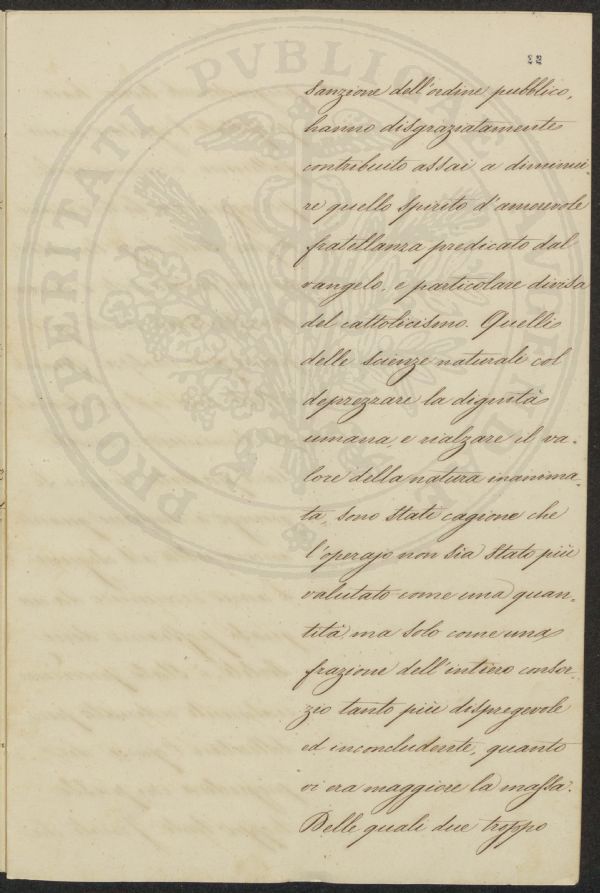 22
sanzione dell'ordine pubblico,
hanno disgraziatamente
contribuito assai a diminui-
re quello spirito d'amorevole
fratellanza predicato dal
vangelo, e particolare divisa
del cattolicismo. Quelli
delle scienze naturali col
deprezzare la dignità
umana, e rialzare il va-
lore della natura inanima-
ta, sono stati cagione che
l'operajo non sia stato più
valutato come una quan-
tità ma solo come una
frazione dell'intiero consor-
zio tanto più dispregevole
ed inconcludente, quanto
vi era maggiore la massa.
Delle quali due troppo
PROSPERITATI PVBLICAE